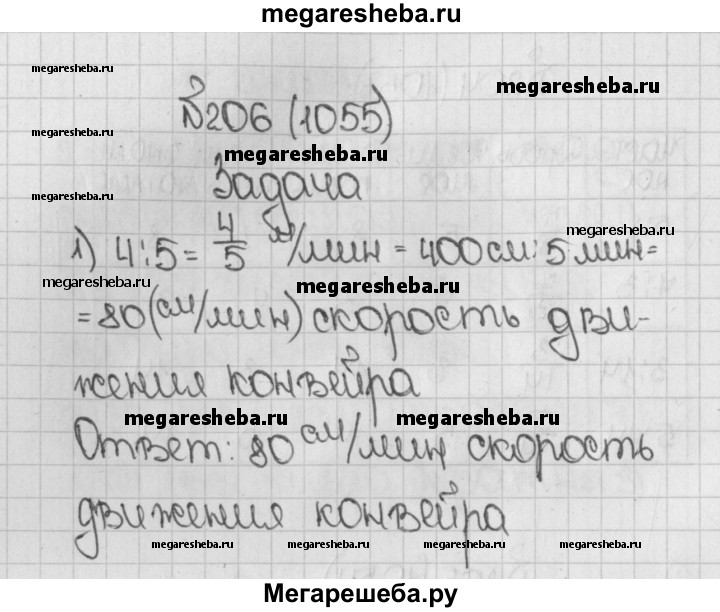 megaresheba.ru
megaresheba.ru
megaresheba.ru
№206 (1055)
megaresheba.ru
megaresheba.ru
Задача
megaresheba.ru
1) 4:5= 4/5 м/мин = 400см:5мин=
megaresheba.ru
megaresheba.ru
megaresheba.ru
=80(см/мин) скорость дви-
жения конвейра
megaresheba.ru
megaresheba.ru
Ответ: 80 см/мин скорость
движения конвейра
megaresheba.ru
megaresheba.ru
megaresheba.ru
Мегарешеба.ру